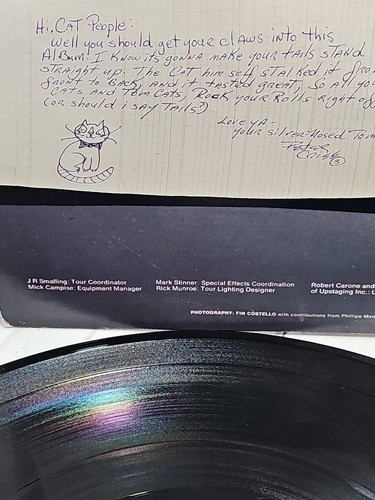 Hi, CAT People:
Well you should get your claws into this
Album! I know its gonna make your tails stand
straight up. The CAT himself stalked it from
front to Back, and it tasted great, so all you
Cats and Tom Cats, Rock your Rolls Right off
(or should i say Tails?)
Love ya-
your silver-nosed Tom
Peter
Criss
J R Smalling: Tour Coordinator
Mick Campise: Equipment Manager
Mark Stinner: Special Effects Coordination
Rick Munroe: Tour Lighting Designer
Robert Carone and
of Upstaging Inc.: L
PHOTOGRAPHY: FIN COSTELLO with contributions from Phillipe Mor